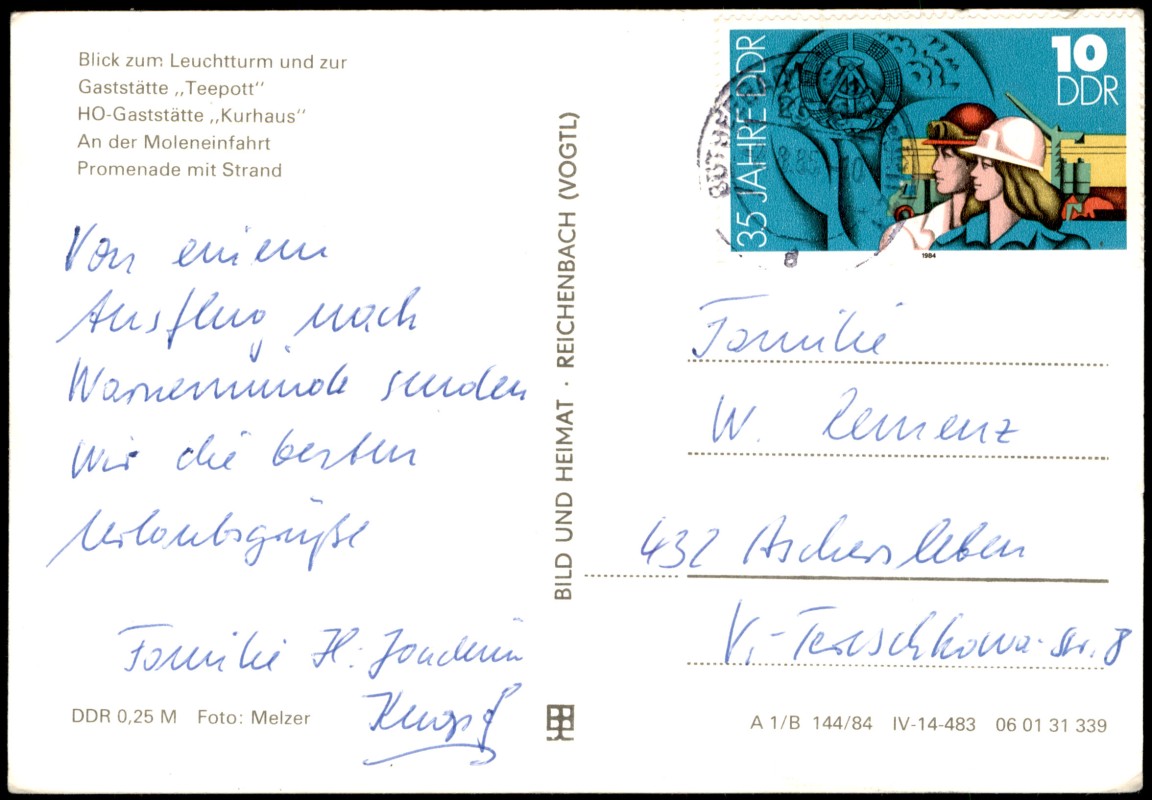 Blick zum Leuchtturm und zur
Gaststätte „Teepott"
HO-Gaststätte „Kurhaus"
An der Moleneinfahrt
Promenade mit Strand
Von einem
Ausflug nach
Warnemünde senden
wir die besten
Urlaubsgrüße
Familie H.
DDR 0,25 M Foto: Melzer
BILD UND HEIMAT · REICHENBACH (VOGTL)
35 JAHRE DDR
10
DDR
1984
Familie
W. Remenz
432 Aschersleben
V.-Tereschkowa-Str. 8
A 1/B 144/84 IV-14-483 06 01 31 339